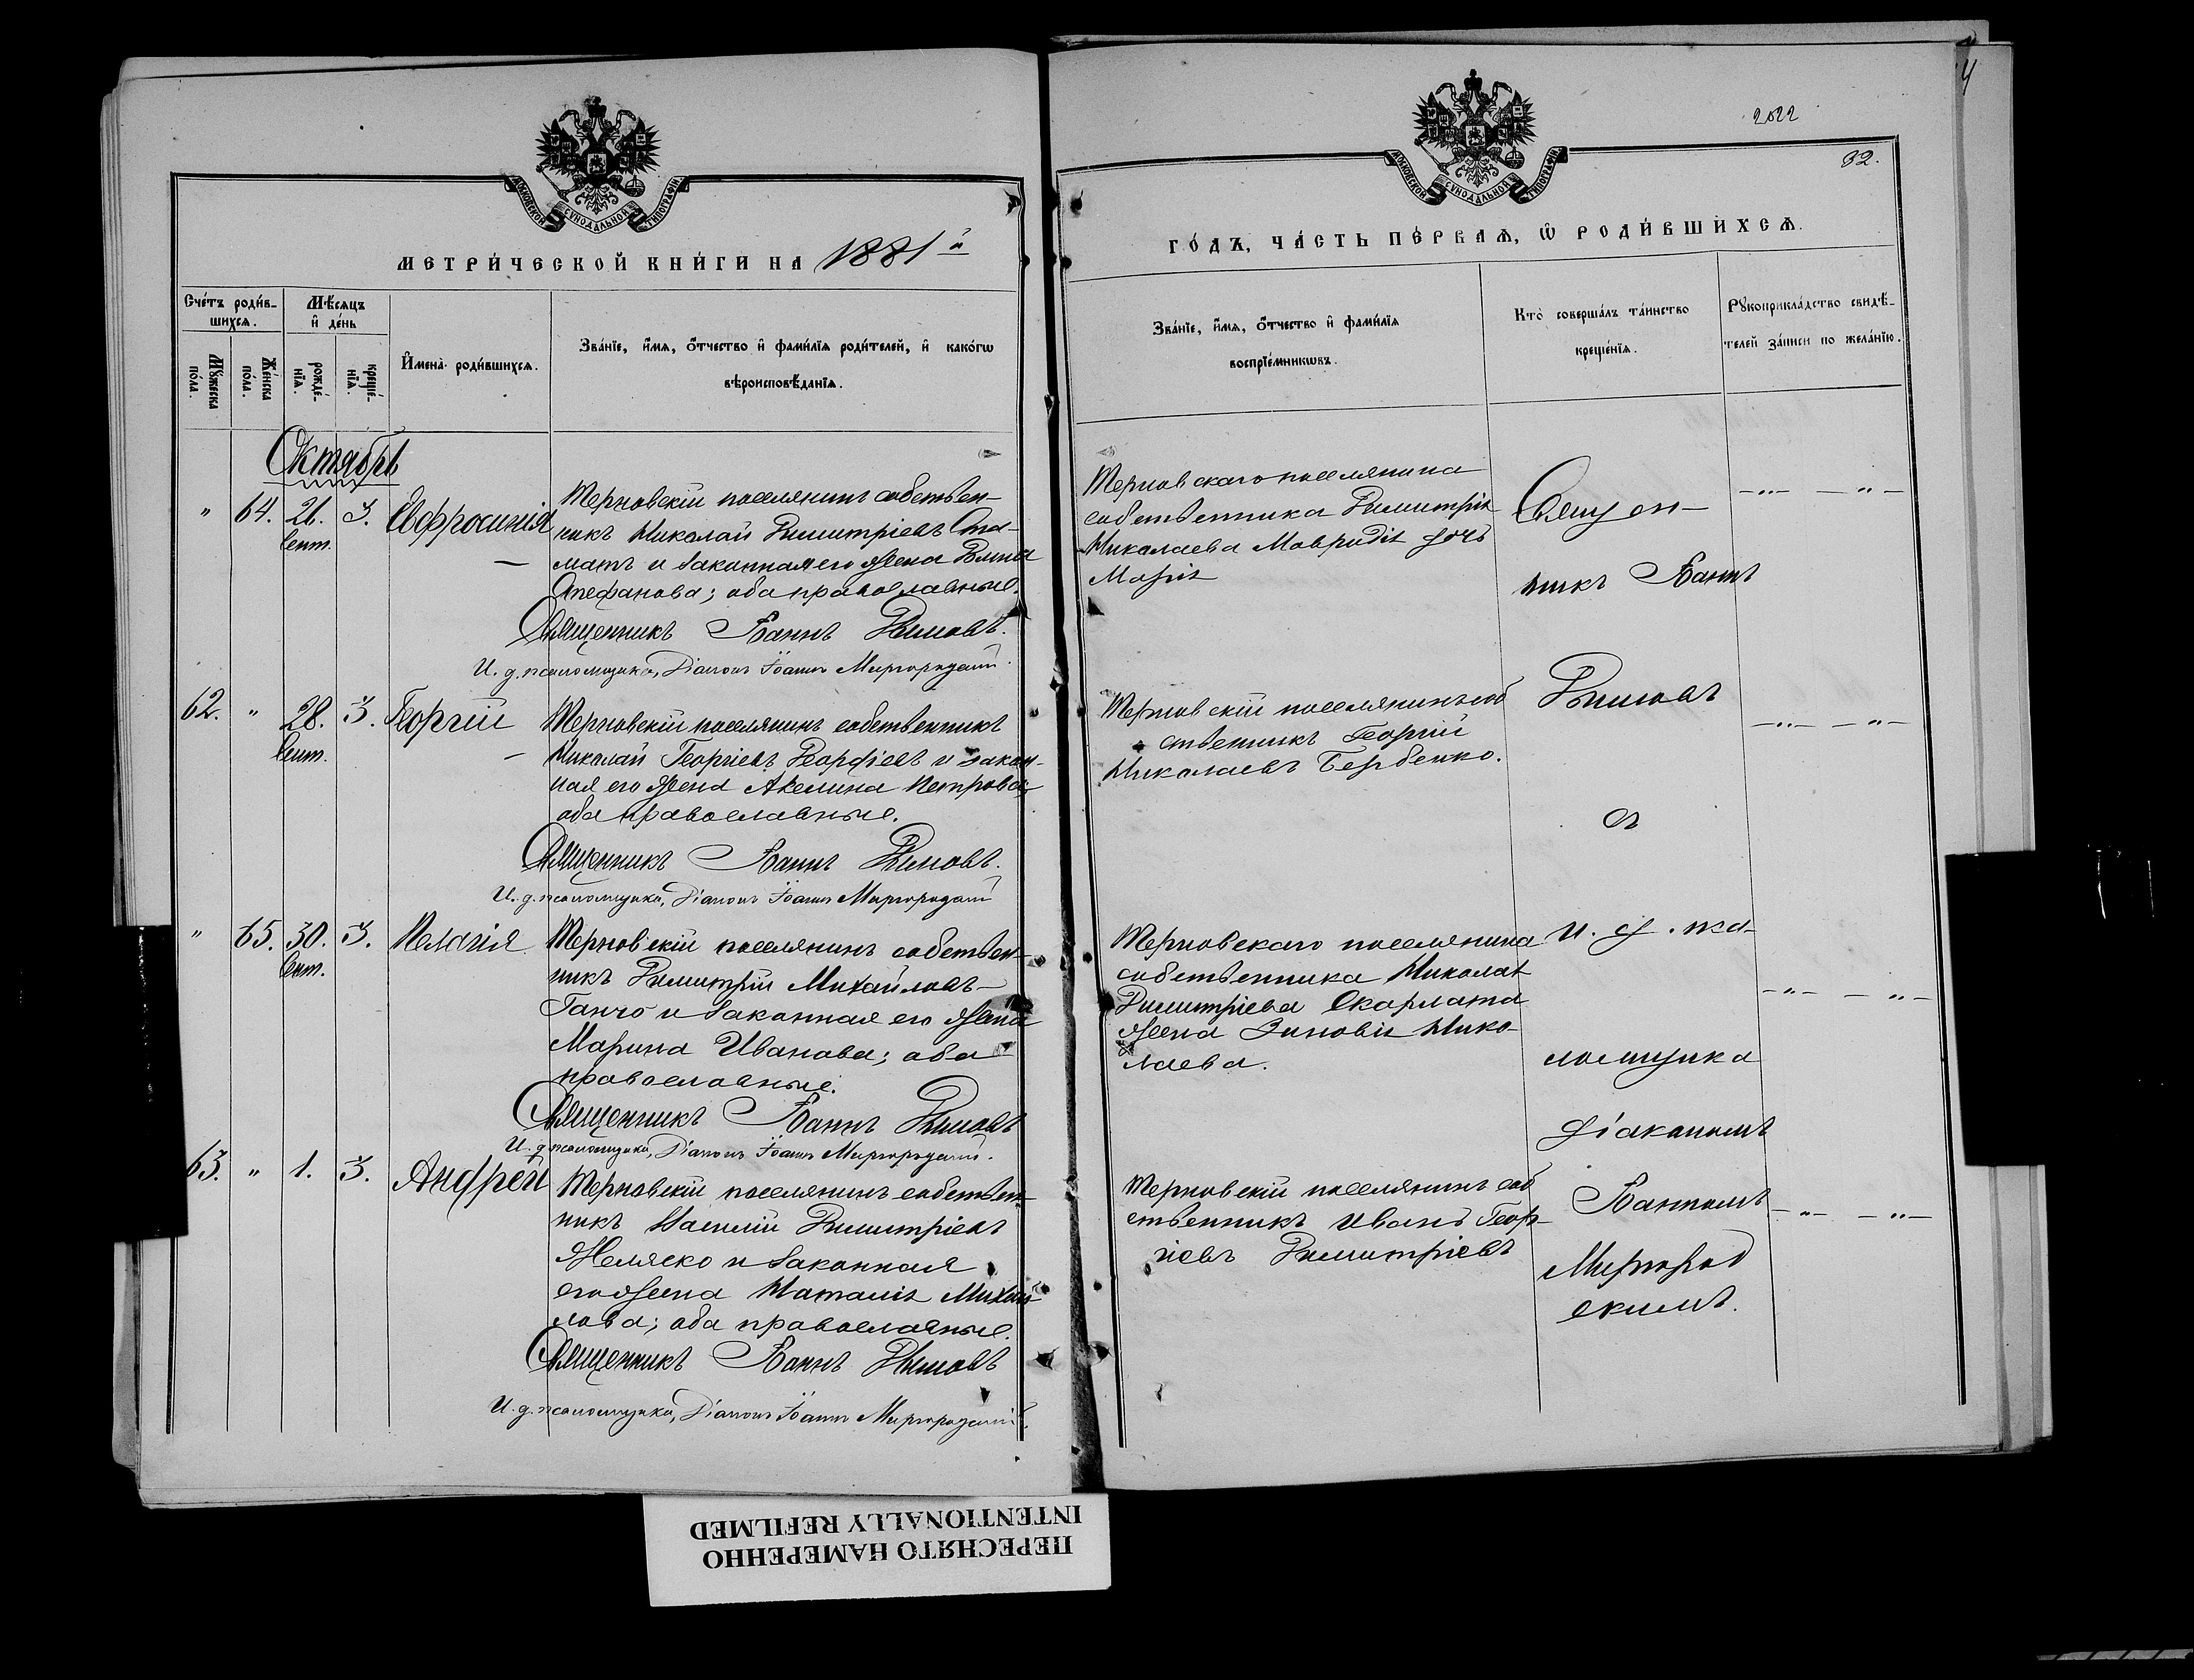 МОСКОВСКОЙ СѴНОДАЛЬНОЙ ТИПОГРАФІИ.
МЕТРИ́ЧЕСКОЙ КНИ́ГИ НА 1881й
Сче́тъ роди́в-
шихсѧ.
Мѣ́сѧцъ
и҆ де́нь
Мꙋ́жеска
по́ла.
Же́нска
по́ла.
рожде́-
нїѧ.
креще́-
нїѧ.
И҆мена̀ роди́вшихсѧ.
Зва́нїе, и҆́мѧ, ѻ҆́тчество и҆ фами́лїѧ роди́телей, и҆ како́гѡ
вѣроисповѣ́данїѧ.
Октябрь
" 64. 26. 3. Евфросинія
Сент.
Терновскій поселянинъ собствен-
никъ Николай Димитріевъ Ста-
матъ и законная его жена
Стефанова; оба православные.
Священникъ Іоаннъ Димовъ.
И. д. псаломщика, Діаконъ Іоаннъ Миргородскій.
62. " 28. 3. Георгій
Сент.
Терновскій поселянинъ собственникъ
Николай Георгіевъ Георгіевъ и закон-
ная его жена Акелина Петрова;
оба православные.
Священникъ Іоаннъ Димовъ.
И. д. псаломщика, Діаконъ Іоаннъ Миргородскій
" 65. 30. 3. Пелагія
Сент.
Терновскій поселянинъ собствен-
никъ Димитрій Михайловъ
Ганчо и законная его жена
Марина Иванова; оба
православные.
Священникъ Іоаннъ Димовъ
И. д. псаломщика, Діаконъ Іоаннъ Миргородскій.
63. " 1. 3. Андрей
Терновскій поселянинъ собствен-
никъ Василій Димитріевъ
Желяско и законная
его жена Наталія Михай-
лова; оба православные.
Священникъ Іоаннъ Димовъ
И. д. псаломщика, Діаконъ Іоаннъ Миргородскій.
2022
32.
МОСКОВСКОЙ СѴНОДАЛЬНОЙ ТИПОГРАФІИ.
ГО́ДЪ, ЧА́СТЬ ПЕ́РВАѦ, Ѡ҆ РОДИ́ВШИХСѦ.
Зва́нїе, и҆́мѧ, ѻ҆́тчество и҆ фами́лїѧ
воспрїе́мникѡвъ.
Кто̀ соверша́лъ та́инство
креще́нїѧ.
Рꙋкоприкла́дство свидѣ́-
телей за́писи по жела́нїю.
Терновскаго поселянина
собственника Димитрія
Николаева Мавродія дочь
Марія
Терновскій поселянинъ соб
ственникъ Георгій
Николаевъ Бербенко.
Терновскаго поселянина
собственника Николая
Димитріева Скарлата
жена Зиновія Нико-
лаева.
Терновскій поселянинъ соб
ственникъ Иванъ Геор-
гіевъ Димитріевъ
Священ-
никъ Іоаннъ
Димовъ
съ
и. д. пса-
ломщика
діакономъ
Іоанномъ
Миргород
скимъ.
ПЕРЕСНЯТО НАМЕРЕННО
INTENTIONALLY REFILMED